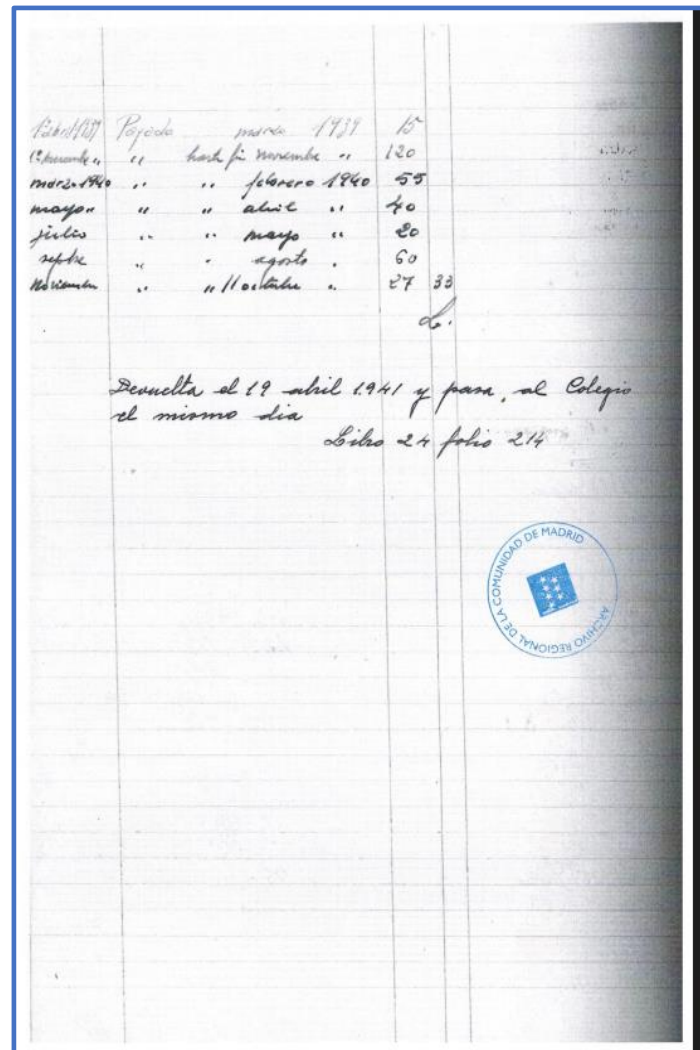 1º abril 1939 Pagado marzo 1939 15
1º noviembre " " hasta fin noviembre " 120
marzo 1940 " " febrero 1940 55
mayo " " " abril " 40
julio " " mayo " 20
septbre " " agosto " 60
Noviembre " " 11 octubre " 27 33
L.
Devuelta el 19 abril 1.941 y pasa, al Colegio
el mismo dia
Libro 24 folio 214
ARCHIVO REGIONAL DE LA COMUNIDAD DE MADRID